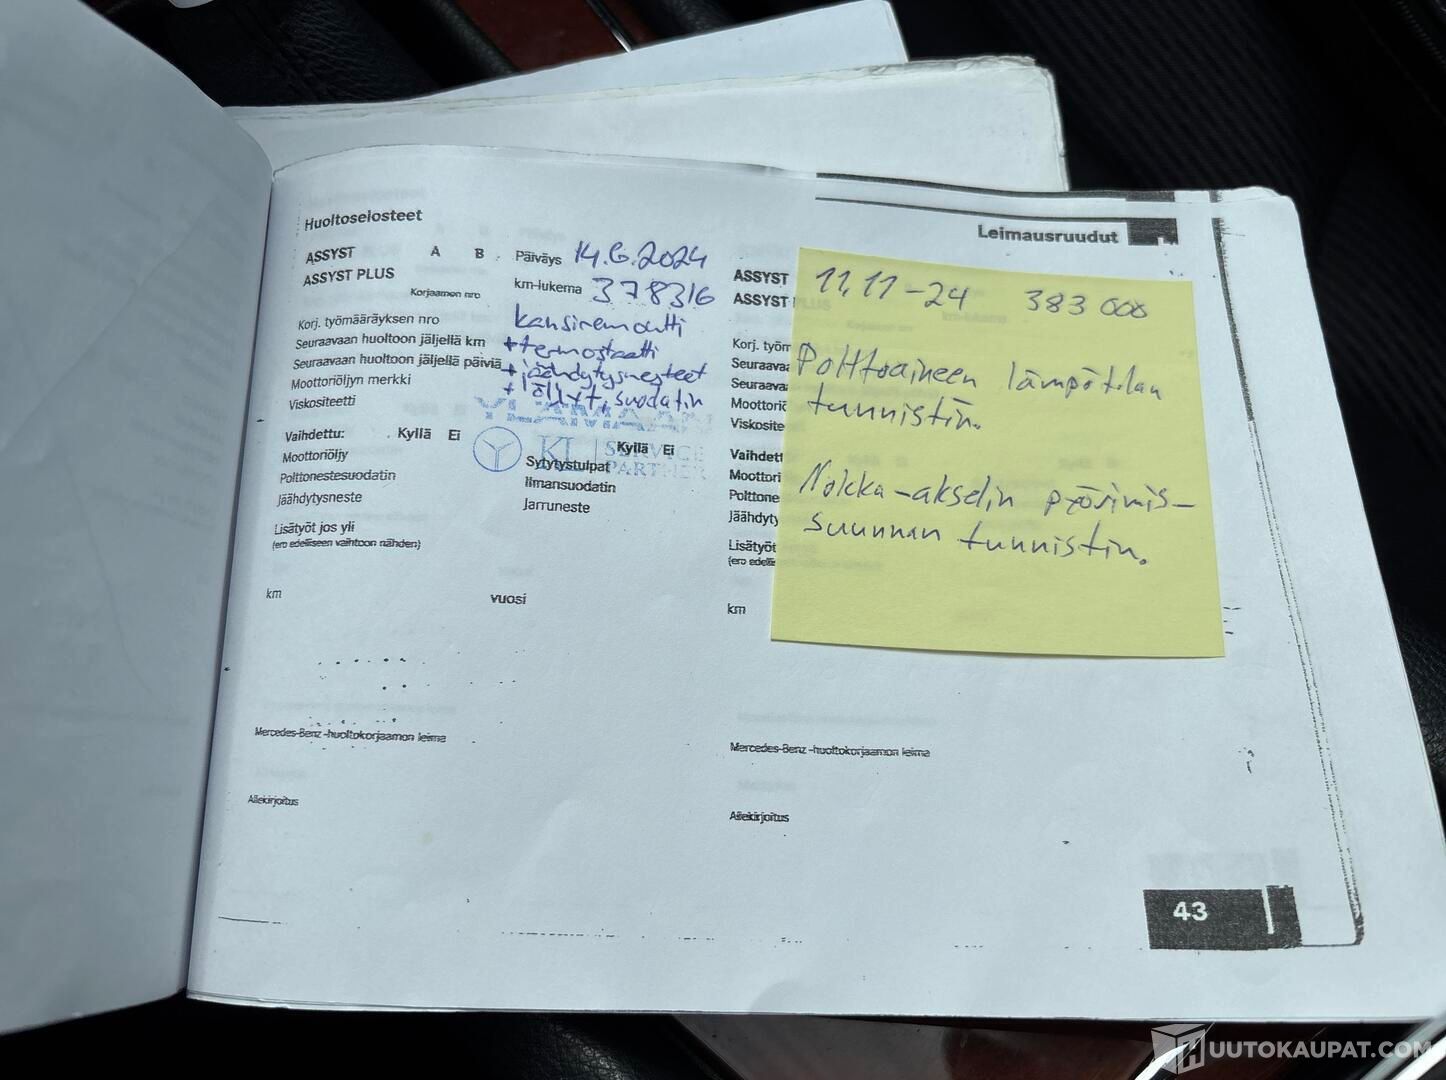 Huoltoselosteet
Leimausruudut
ASSYST A B Päiväys 14.6.2024
ASSYST PLUS km-lukema 378316
Korjaamon nro
Korj. työmääräyksen nro kansiremontti
Seuraavaan huoltoon jäljellä km + termostaatti
Seuraavaan huoltoon jäljellä päiviä + jäähdytysnesteet
Moottoriöljyn merkki + öljyt, suodatin
Viskositeetti
KL SERVICE PARTNER
Vaihdettu: Kyllä Ei Kyllä Ei
Moottoriöljy Sytytystulpat
Polttonestesuodatin Ilmansuodatin
Jäähdytysneste Jarruneste
Lisätyöt jos yli
(ero edelliseen vaihtoon nähden)
km vuosi
Mercedes-Benz -huoltokorjaamon leima
Allekirjoitus
ASSYST
ASSYST PLUS
Korj. työm
Seuraava
Seuraava
Moottoriö
Viskosite
Vaihdett
Moottori
Polttone
Jäähdyty
Lisätyöt
(ero edelli
km
Mercedes-Benz -huoltokorjaamon leima
Allekirjoitus
11.11-24 383 000
Polttoaineen lämpötilan
tunnistin.
Nokka-akselin pyörimis-
suunnan tunnistin.
43
HUUTOKAUPAT.COM